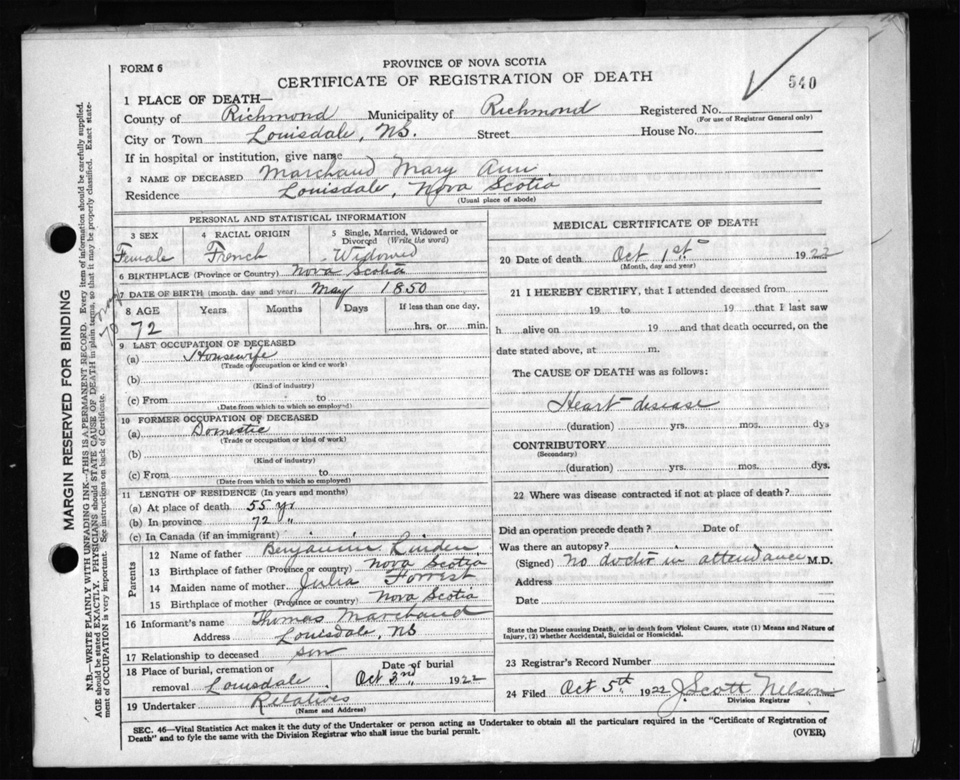 PROVINCE OF NOVA SCOTIA
FORM 6
CERTIFICATE OF REGISTRATION OF DEATH
540
1 PLACE OF DEATH—
County of Richmond Municipality of Richmond Registered No.
(For use of Registrar General only)
City or Town Louisdale, NS. Street House No.
If in hospital or institution, give name
2 NAME OF DECEASED Marchand Mary Ann
Residence Louisdale, Nova Scotia
(Usual place of abode)
PERSONAL AND STATISTICAL INFORMATION
3 SEX 4 RACIAL ORIGIN 5 Single, Married, Widowed or Divorced (Write the word)
Female French Widowed
6 BIRTHPLACE (Province or Country) Nova Scotia
7 DATE OF BIRTH (month, day and year) May 1850
8 AGE Years Months Days If less than one day,
72 hrs. or min.
9 LAST OCCUPATION OF DECEASED
(a) Housewife
(Trade or occupation or kind of work)
(b)
(Kind of industry)
(c) From to
(Date from which to which so employed)
10 FORMER OCCUPATION OF DECEASED
(a) Domestic
(Trade or occupation or kind of work)
(b)
(Kind of industry)
(c) From to
(Date from which to which so employed)
11 LENGTH OF RESIDENCE (In years and months)
(a) At place of death 55 yr
(b) In province 72 "
(c) In Canada (if an immigrant)
Parents
12 Name of father Benjamin Linden
13 Birthplace of father (Province or country) Nova Scotia
14 Maiden name of mother Julia Forrest
15 Birthplace of mother (Province or country) Nova Scotia
16 Informant's name Thomas Marchand
Address Louisdale, NS
17 Relationship to deceased son
18 Place of burial, cremation or removal Louisdale Date of burial Oct 3rd 1922
19 Undertaker Relatives
(Name and Address)
MEDICAL CERTIFICATE OF DEATH
20 Date of death Oct 1st 1922
(Month, day and year)
21 I HEREBY CERTIFY, that I attended deceased from
19 to 19 that I last saw
h alive on 19 and that death occurred, on the
date stated above, at m.
The CAUSE OF DEATH was as follows:
Heart disease
(duration) yrs. mos. dys
CONTRIBUTORY
(Secondary)
(duration) yrs. mos. dys.
22 Where was disease contracted if not at place of death?
Did an operation precede death? Date of
Was there an autopsy?
(Signed) No doctor in attendance M.D.
Address
Date
State the Disease causing Death, or in death from Violent Causes, state (1) Means and Nature of
Injury, (2) whether Accidental, Suicidal or Homicidal.
23 Registrar's Record Number
24 Filed Oct 5th 1922 J. Scott Nelson
Division Registrar
SEC. 46—Vital Statistics Act makes it the duty of the Undertaker or person acting as Undertaker to obtain all the particulars required in the "Certificate of Registration of
Death" and to fyle the same with the Division Registrar who shall issue the burial permit.
(OVER)
MARGIN RESERVED FOR BINDING
N.B.—WRITE PLAINLY WITH UNFADING INK—THIS IS A PERMANENT RECORD. Every item of information should be carefully supplied.
AGE should be stated EXACTLY. PHYSICIANS should STATE CAUSE OF DEATH in plain terms, so that it may be properly classified. Exact state-
ment of OCCUPATION is very important. See instructions on back of Certificate.